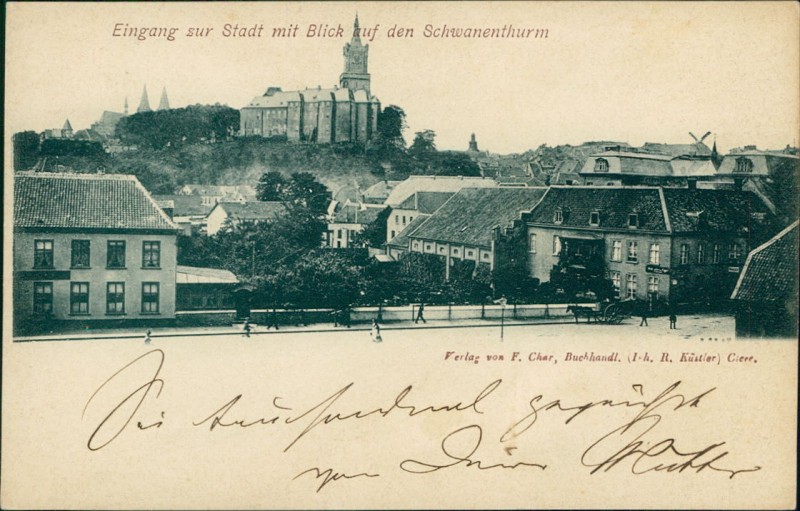 Eingang zur Stadt mit Blick auf den Schwanenthurm
Verlag von F. Char, Buchhandl. (Inh. R. Küster) Cleve.
Sei tausendmal gegrüßt
von Deiner Mutter